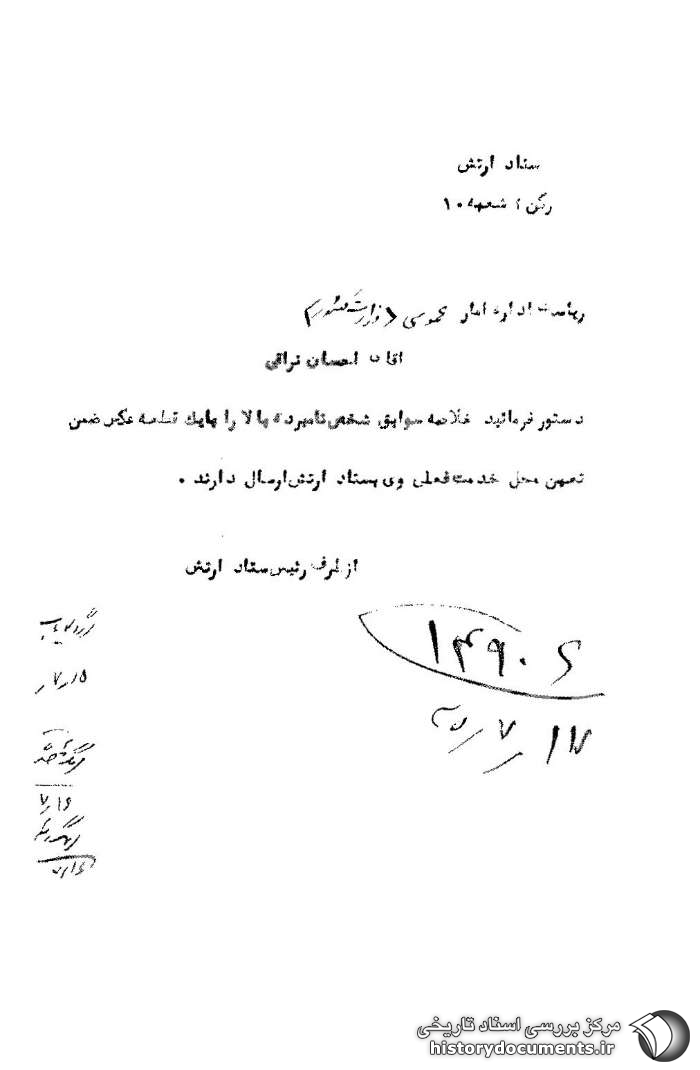 ستاد ارتش
رکن ۲ شعبه ۱۰
ریاست اداره آمار عمومی (وزارت کشور)
آقای احسان نراقی
دستور فرمائید خلاصه سوابق شخص نامبرده بالا را بایک قطعه عکس ضمن
تعیین محل خدمت فعلی وی بستاد ارتش ارسال دارند .
از طرف رئیس ستاد ارتش
۱۴۹۰۶
۱۷
۷
۱۵
۷
۷ ۱۶
۷ ۱۶
مرکز بررسی اسناد تاریخی
historydocuments.ir